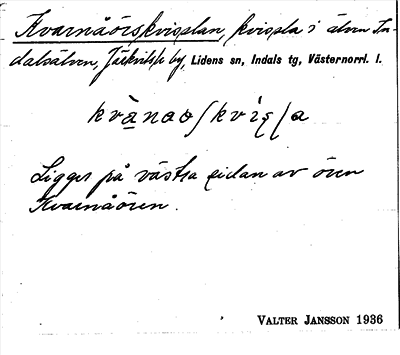 Kvarnåörskvisslan, kvissla i älven In-
dalsälven, Järkvitsle by, Lidens sn, Indals tg, Västernorrl. l.
Ligger på västra sidan av ören
Kvarnåören.
VALTER JANSSON 1936